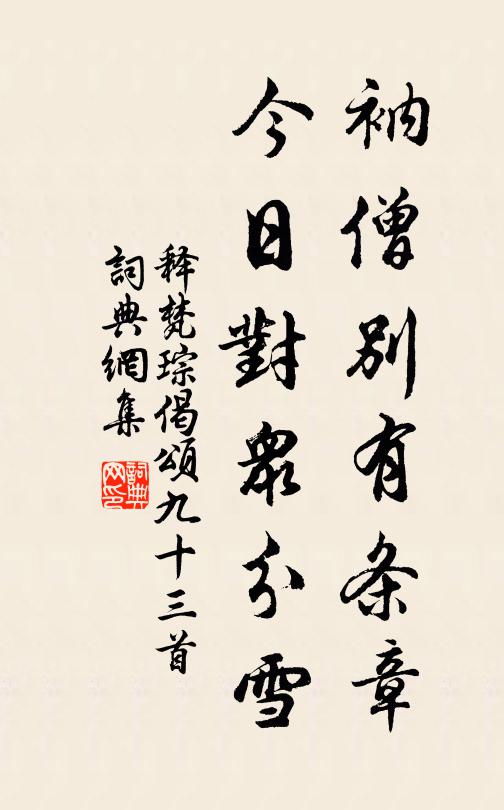 衲僧別有条章
今日對眾分雪
释梵琮偈頌九十三首
詞典網集
詞典网印